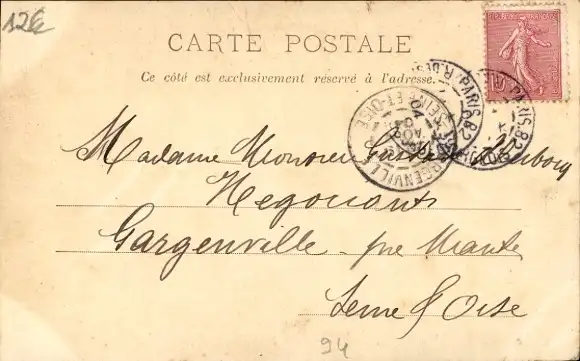 12€
CARTE POSTALE
Ce côté est exclusivement réservé à l'adresse.
10
PARIS.82
GARGENVILLE
SEINE-ET-OISE
Madame Monsieur
Negociants
Gargenville - pre Mante
Seine & Oise
94